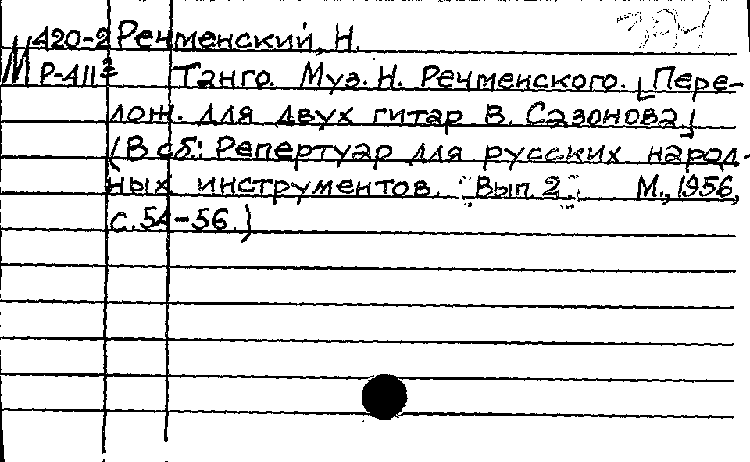 М 420-2 Речменский, Н.
Р-411² Танго. Муз. Н. Речменского. [Пере-
лож. для двух гитар В. Сазонова]
(В сб.: Репертуар для русских народ-
ных инструментов. Вып. 2. М., 1956,
с. 54-56.)